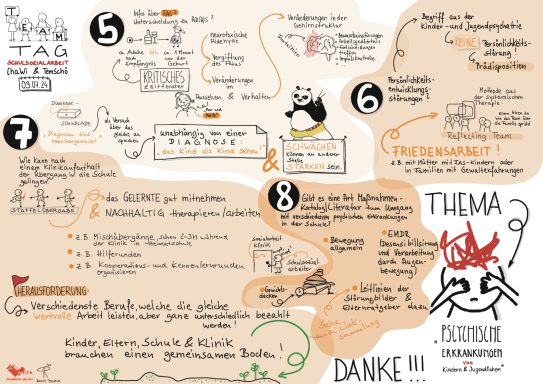 TEAM
TAG
SCHULSOZIALARBEIT
09.09.24
5
Infos über FAS?
Unterscheidung zu AD(H)S?
ca. 1 Monat
vor der
Geburt
KRITISCHES
Zeitfenster
neurotoxische
Pädemie
Vergiftung
des Babys
Veränderungen
im
Aussehen & Verhalten
Veränderungen in der
Gehirnstruktur
Impulskontrolle
6
Begriff aus der
Kinder- und Jugendpsychiatrie
KEINE Persönlichkeits-
störung!
Prädisposition
Persönlichkeits-
entwicklungs-
störungen?
Methode aus
der systemischen
Therapie
Reflecting Team
FRIEDENSARBEIT!
z.B. mit Mütter mit FAS-Kindern oder
in Familien mit Gewalterfahrungen
7
Diagnose -
SCHUBLADE
"Diagnosen sind
menschengemacht"
als Versuch über
das gleiche
zu sprechen
unabhängig von einer
DIAGNOSE:
"das Kind als Kind sehen!"
&
SCHWÄCHEN
können an anderer
Stelle
STÄRKEN sein.
Wie kann nach
einem Klinikaufenthalt
der Übergang in die Schule
gelingen?
STAFFELÜBERGABE
das GELERNTE gut mitnehmen
& NACHHALTIG therapieren/arbeiten
z.B. Mischübergänge, schon 2-3x während
der Klinik in Heimatschule
z.B. Hilferunden
z.B. Kooperations- und Kennenlernrunden
organisieren
8
Gibt es eine Art Maßnahmen-
katalog/Literatur zum Umgang
mit verschiedenen psychischen Erkrankungen
in der Schule?
Bewegung
allgemein
EMDR
(Desensibilisierung
und Verarbeitung
durch Augen-
bewegung)
Leitlinien der
Störungsbilder &
Elternratgeber dazu
Siehe
Link-
sammlung
Sozialarbeit
Klinik
Schulsozial-
arbeiter
HERAUSFORDERUNG
Verschiedenste Berufe, welche die gleiche
wertvolle Arbeit leisten, aber ganz unterschiedlich bezahlt
werden!
Kinder, Eltern, Schule & Klinik
brauchen einen gemeinsamen Boden!
DANKE!!!
THEMA
"PSYCHISCHE
ERKRANKUNGEN
von
Kindern & Jugendlichen"